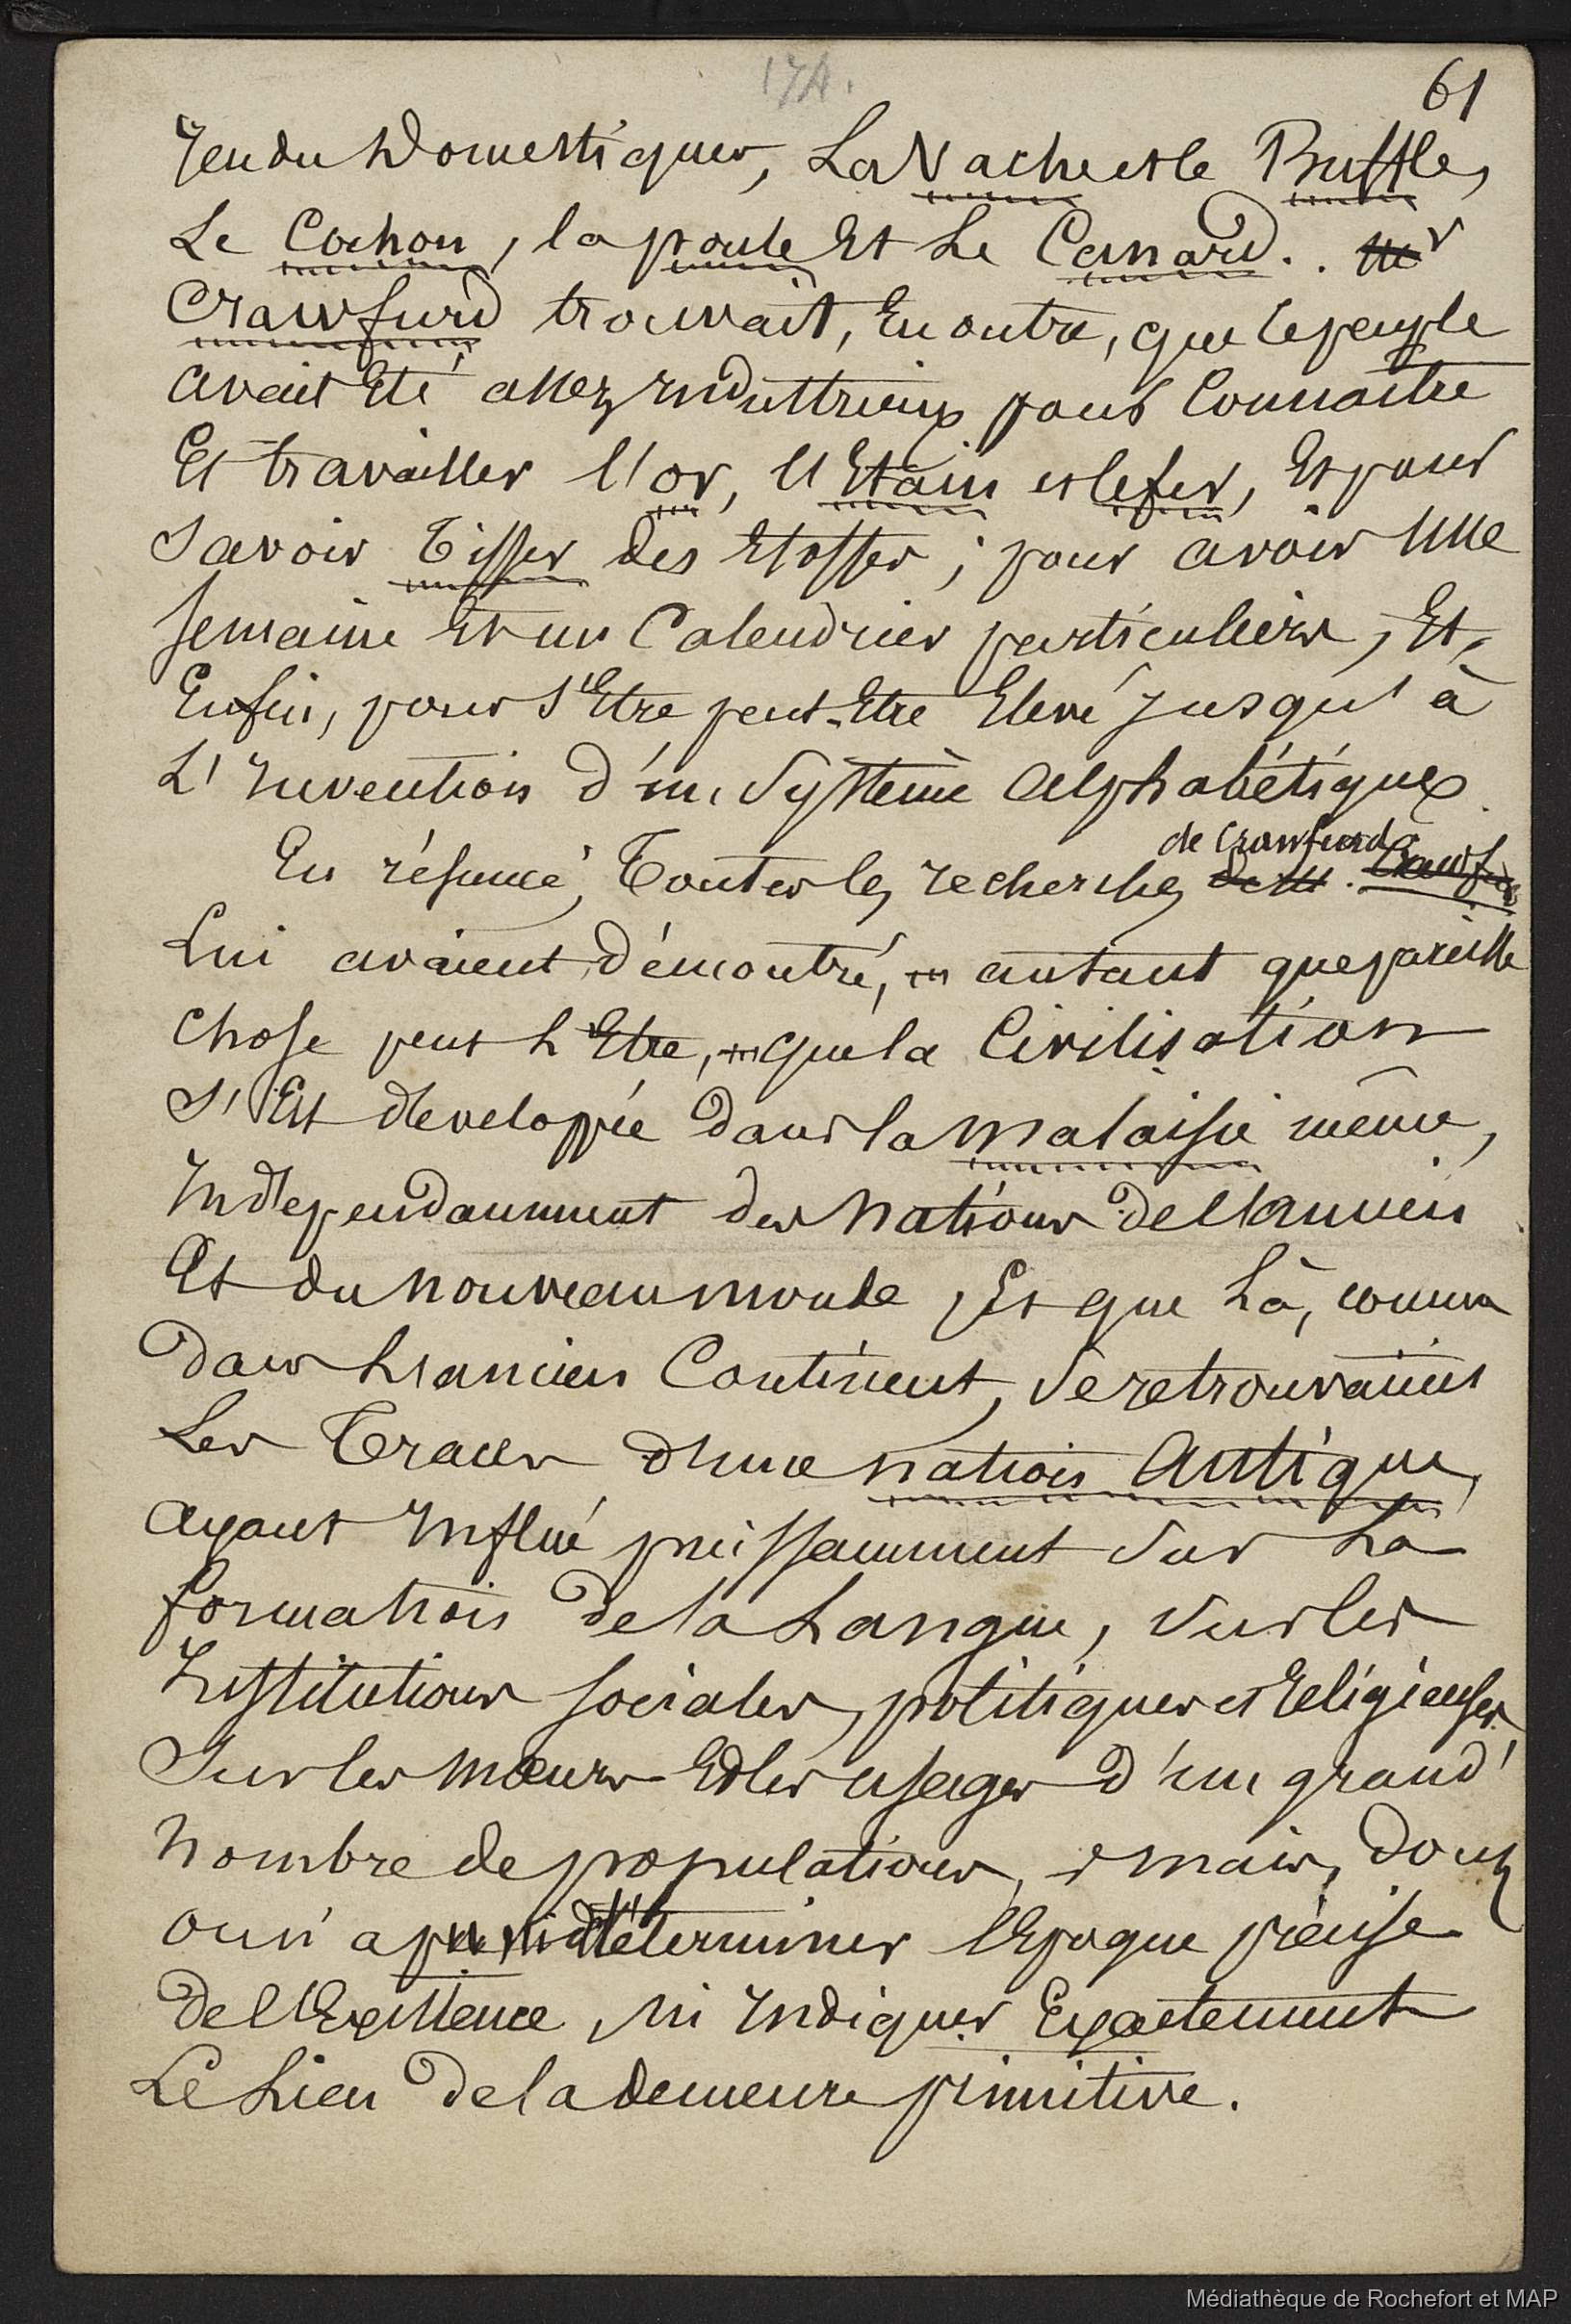 174.
61
rendu Domestiques, La Vache et le Buffle,
Le Cochon, la poule Et Le Canard. . Mr
Crawfurd trouvait, En outre, que le peuple
avait Eté assez industrieux pour Connaître
Et travailler l'or, l'Etain et le fer, Et pour
savoir Tisser des Etoffes ; pour avoir Une
semaine Et un Calendrier particuliers, Et,
Enfin, pour s'Etre peut-Etre Elevé jusqu'à
L'Invention d'un Système Alphabétique.
de Crawfurd
En résumé, Toutes les recherches de M. Crawfurd
Lui avaient démontré, autant que pareille
chose peut L'Etre, que la Civilisation
s'Est développée dans la Malaisie même,
Indépendamment des Nations de l'ancien
Et du nouveau monde, Et que Là, comme
dans L'ancien Continent, se retrouvaient
Les Traces d'une nation Antique,
ayant Influé puissamment sur La
formation de la Langue, sur les
Institutions sociales, politiques et religieuses
sur les mœurs Et les usages d'un grand
nombre de populations, mais, dont
on n'a pu ni déterminer l'Epoque précise
de l'Existence, ni indiquer Exactement
Le Lieu de la demeure primitive.
Médiathèque de Rochefort et MAP